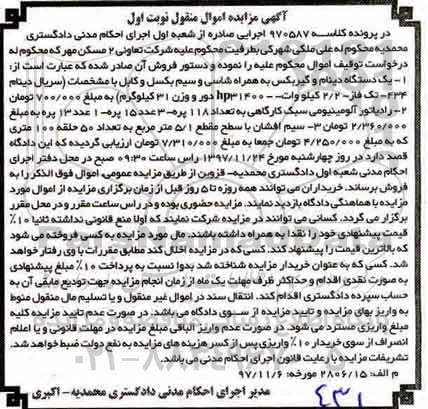 آگهی مزایده اموال منقول نوبت اول
در پرونده کلاسه ۹۷۰۵۸۷ اجرایی صادره از شعبه اول اجرای احکام مدنی دادگستری
محمدیه محکوم له علی ملکی شهرکی بطرفیت محکوم علیه شرکت تعاونی ۲ مسکن مهر که محکوم له
درخواست توقیف اموال محکوم علیه را نموده و دستور فروش آن صادر شده که عبارت است از:
۱- یک دستگاه دینام و گیربکس به همراه شاسی و سیم بکسل و کابل با مشخصات (سریال دینام
۴۳۴- تک فاز- ۲/۲ کیلو وات- hp۳۱۴۰۰ دور و وزن ۳۱ کیلوگرم) به مبلغ ۷۰۰/۰۰۰ تومان
۲- رادیاتور آلومینیومی سبک کارگاهی به تعداد ۱۱۸ پره- ۳ عدد ۱۵ پره- ۱ عدد ۱۳ پره به مبلغ
۲/۳۶۰/۰۰۰ تومان ۳- سیم افشان با سطح مقطع ۵/۱ متر مربع به تعداد ۵۰ حلقه ۱۰۰ متری
که به مبلغ ۴/۲۵۰/۰۰۰ تومان جمعا به مبلغ ۷/۳۱۰/۰۰۰ تومان ارزیابی گردیده که این دادگاه
قصد دارد در روز چهارشنبه مورخ ۱۳۹۷/۱۱/۲۴ راس ساعت ۰۹:۳۰ صبح در محل دفتر اجرای
احکام مدنی شعبه اول دادگستری محمدیه- قزوین از طریق مزایده عمومی، اموال فوق الذکر را به
فروش برساند. خریداران می توانند همه روزه تا ۵ روز قبل از زمان برگزاری مزایده از اموال مورد
مزایده با هماهنگی دادگاه بازدید نمایند. مزایده حضوری بوده و در راس ساعت مقرر و در محل مقرر
برگزار می گردد. کسانی می توانند در مزایده شرکت نمایند که اولا منع قانونی نداشته ثانیا ۱۰٪
قیمت پیشنهادی خود را نقدا به همراه داشته باشند. مال مورد مزایده به کسی فروخته می شود
که بالاترین قیمت را پیشنهاد کند. کسی که در مزایده اخلال کند مطابق مقررات با وی رفتار خواهد
شد. کسی که به عنوان خریدار مزایده شناخته شد بدوا نسبت به پرداخت ۱۰٪ مبلغ پیشنهادی
به صورت نقدی اقدام و حداکثر ظرف مهلت یک ماه از زمان انجام مزایده جهت تودیع مابقی آن به
حساب سپرده دادگستری اقدام کند. انتقال سند در اموال غیر منقول و یا تسلیم مال منقول منوط
به واریز بهای مزایده و تایید مزایده از سوی دادگاه می باشد. در صورت عدم تایید مزایده کلیه
مبلغ واریزی مسترد می شود. در صورت عدم واریز الباقی مبلغ مزایده در مهلت قانونی و یا اعلام
انصراف از سوی خریدار ۱۰٪ واریزی پس از کسر هزینه های مزایده به نفع دولت ضبط خواهد شد.
تشریفات مزایده با رعایت قانون اجرای احکام مدنی می باشد.
م الف: ۲۸۰۶/۱۵ مورخه: ۹۷/۱۱/۶
مدیر اجرای احکام مدنی دادگستری محمدیه- اکبری
۴۳۱